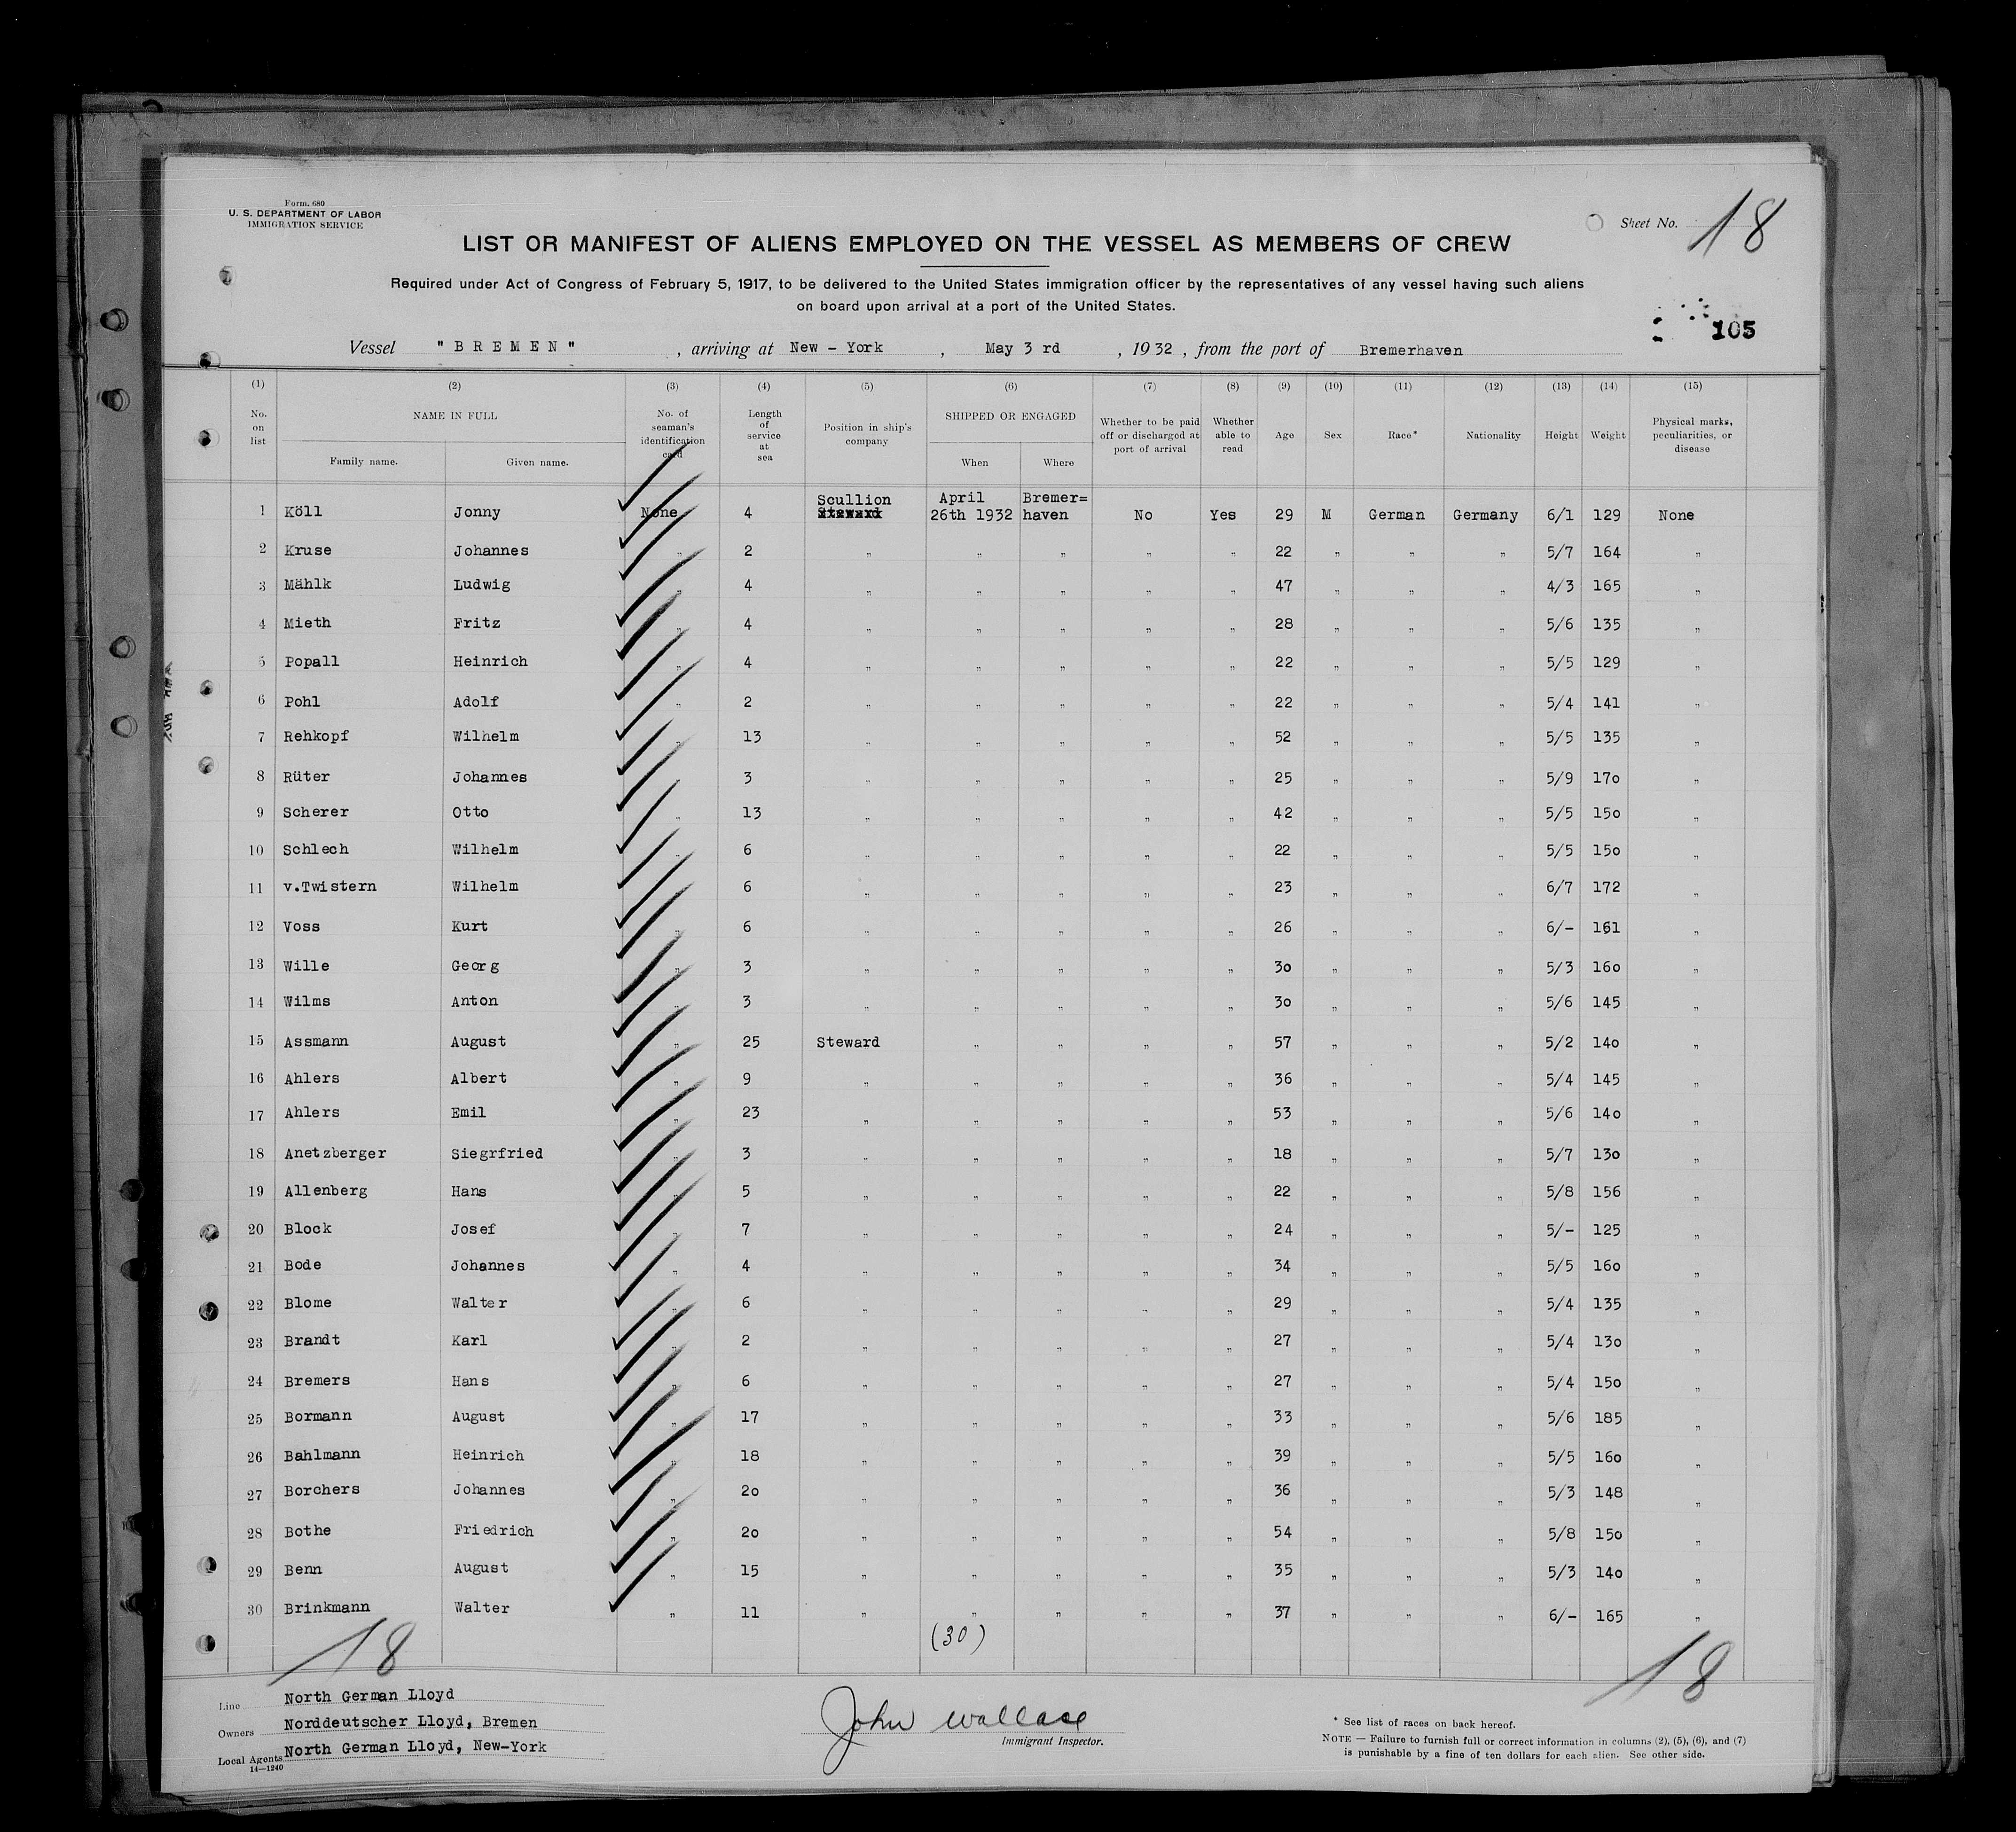 Form. 680
U. S. DEPARTMENT OF LABOR
IMMIGRATION SERVICE
Sheet No. 18
LIST OR MANIFEST OF ALIENS EMPLOYED ON THE VESSEL AS MEMBERS OF CREW
Required under Act of Congress of February 5, 1917, to be delivered to the United States immigration officer by the representatives of any vessel having such aliens
on board upon arrival at a port of the United States.
105
Vessel "BREMEN", arriving at New - York, May 3 rd, 1932, from the port of Bremerhaven
(1) (2) (3) (4) (5) (6) (7) (8) (9) (10) (11) (12) (13) (14) (15)
No. on list NAME IN FULL Family name. Given name. No. of seaman's identification card Length of service at sea Position in ship's company SHIPPED OR ENGAGED When Where Whether to be paid off or discharged at port of arrival Whether able to read Age Sex Race* Nationality Height Weight Physical marks, peculiarities, or disease
1 Köll Jonny None 4 Scullion Steward April 26th 1932 Bremer= haven No Yes 29 M German Germany 6/1 129 None
2 Kruse Johannes " 2 " " " " " 22 " " " 5/7 164 "
3 Mählk Ludwig " 4 " " " " " 47 " " " 4/3 165 "
4 Mieth Fritz " 4 " " " " " 28 " " " 5/6 135 "
5 Popall Heinrich " 4 " " " " " 22 " " " 5/5 129 "
6 Pohl Adolf " 2 " " " " " 22 " " " 5/4 141 "
7 Rehkopf Wilhelm " 13 " " " " " 52 " " " 5/5 135 "
8 Rüter Johannes " 3 " " " " " 25 " " " 5/9 170 "
9 Scherer Otto " 13 " " " " " 42 " " " 5/5 150 "
10 Schlech Wilhelm " 6 " " " " " 22 " " " 5/5 150 "
11 v.Twistern Wilhelm " 6 " " " " " 23 " " " 6/7 172 "
12 Voss Kurt " 6 " " " " " 26 " " " 6/- 161 "
13 Wille Georg " 3 " " " " " 30 " " " 5/3 160 "
14 Wilms Anton " 3 " " " " " 30 " " " 5/6 145 "
15 Assmann August " 25 Steward " " " " 57 " " " 5/2 140 "
16 Ahlers Albert " 9 " " " " " 36 " " " 5/4 145 "
17 Ahlers Emil " 23 " " " " " 53 " " " 5/6 140 "
18 Anetzberger Siegrfried " 3 " " " " " 18 " " " 5/7 130 "
19 Allenberg Hans " 5 " " " " " 22 " " " 5/8 156 "
20 Block Josef " 7 " " " " " 24 " " " 5/- 125 "
21 Bode Johannes " 4 " " " " " 34 " " " 5/5 160 "
22 Blome Walter " 6 " " " " " 29 " " " 5/4 135 "
23 Brandt Karl " 2 " " " " " 27 " " " 5/4 130 "
24 Bremers Hans " 6 " " " " " 27 " " " 5/4 150 "
25 Bormann August " 17 " " " " " 33 " " " 5/6 185 "
26 Bahlmann Heinrich " 18 " " " " " 39 " " " 5/5 160 "
27 Borchers Johannes " 20 " " " " " 36 " " " 5/3 148 "
28 Bothe Friedrich " 20 " " " " " 54 " " " 5/8 150 "
29 Benn August " 15 " " " " " 35 " " " 5/3 140 "
30 Brinkmann Walter " 11 " " " " " 37 " " " 6/- 165 "
(30)
18
18
Line North German Lloyd
Owners Norddeutscher Lloyd, Bremen
Local Agents North German Lloyd, New-York
14—1240
John Wallace
Immigrant Inspector.
* See list of races on back hereof.
NOTE — Failure to furnish full or correct information in columns (2), (5), (6), and (7)
is punishable by a fine of ten dollars for each alien. See other side.